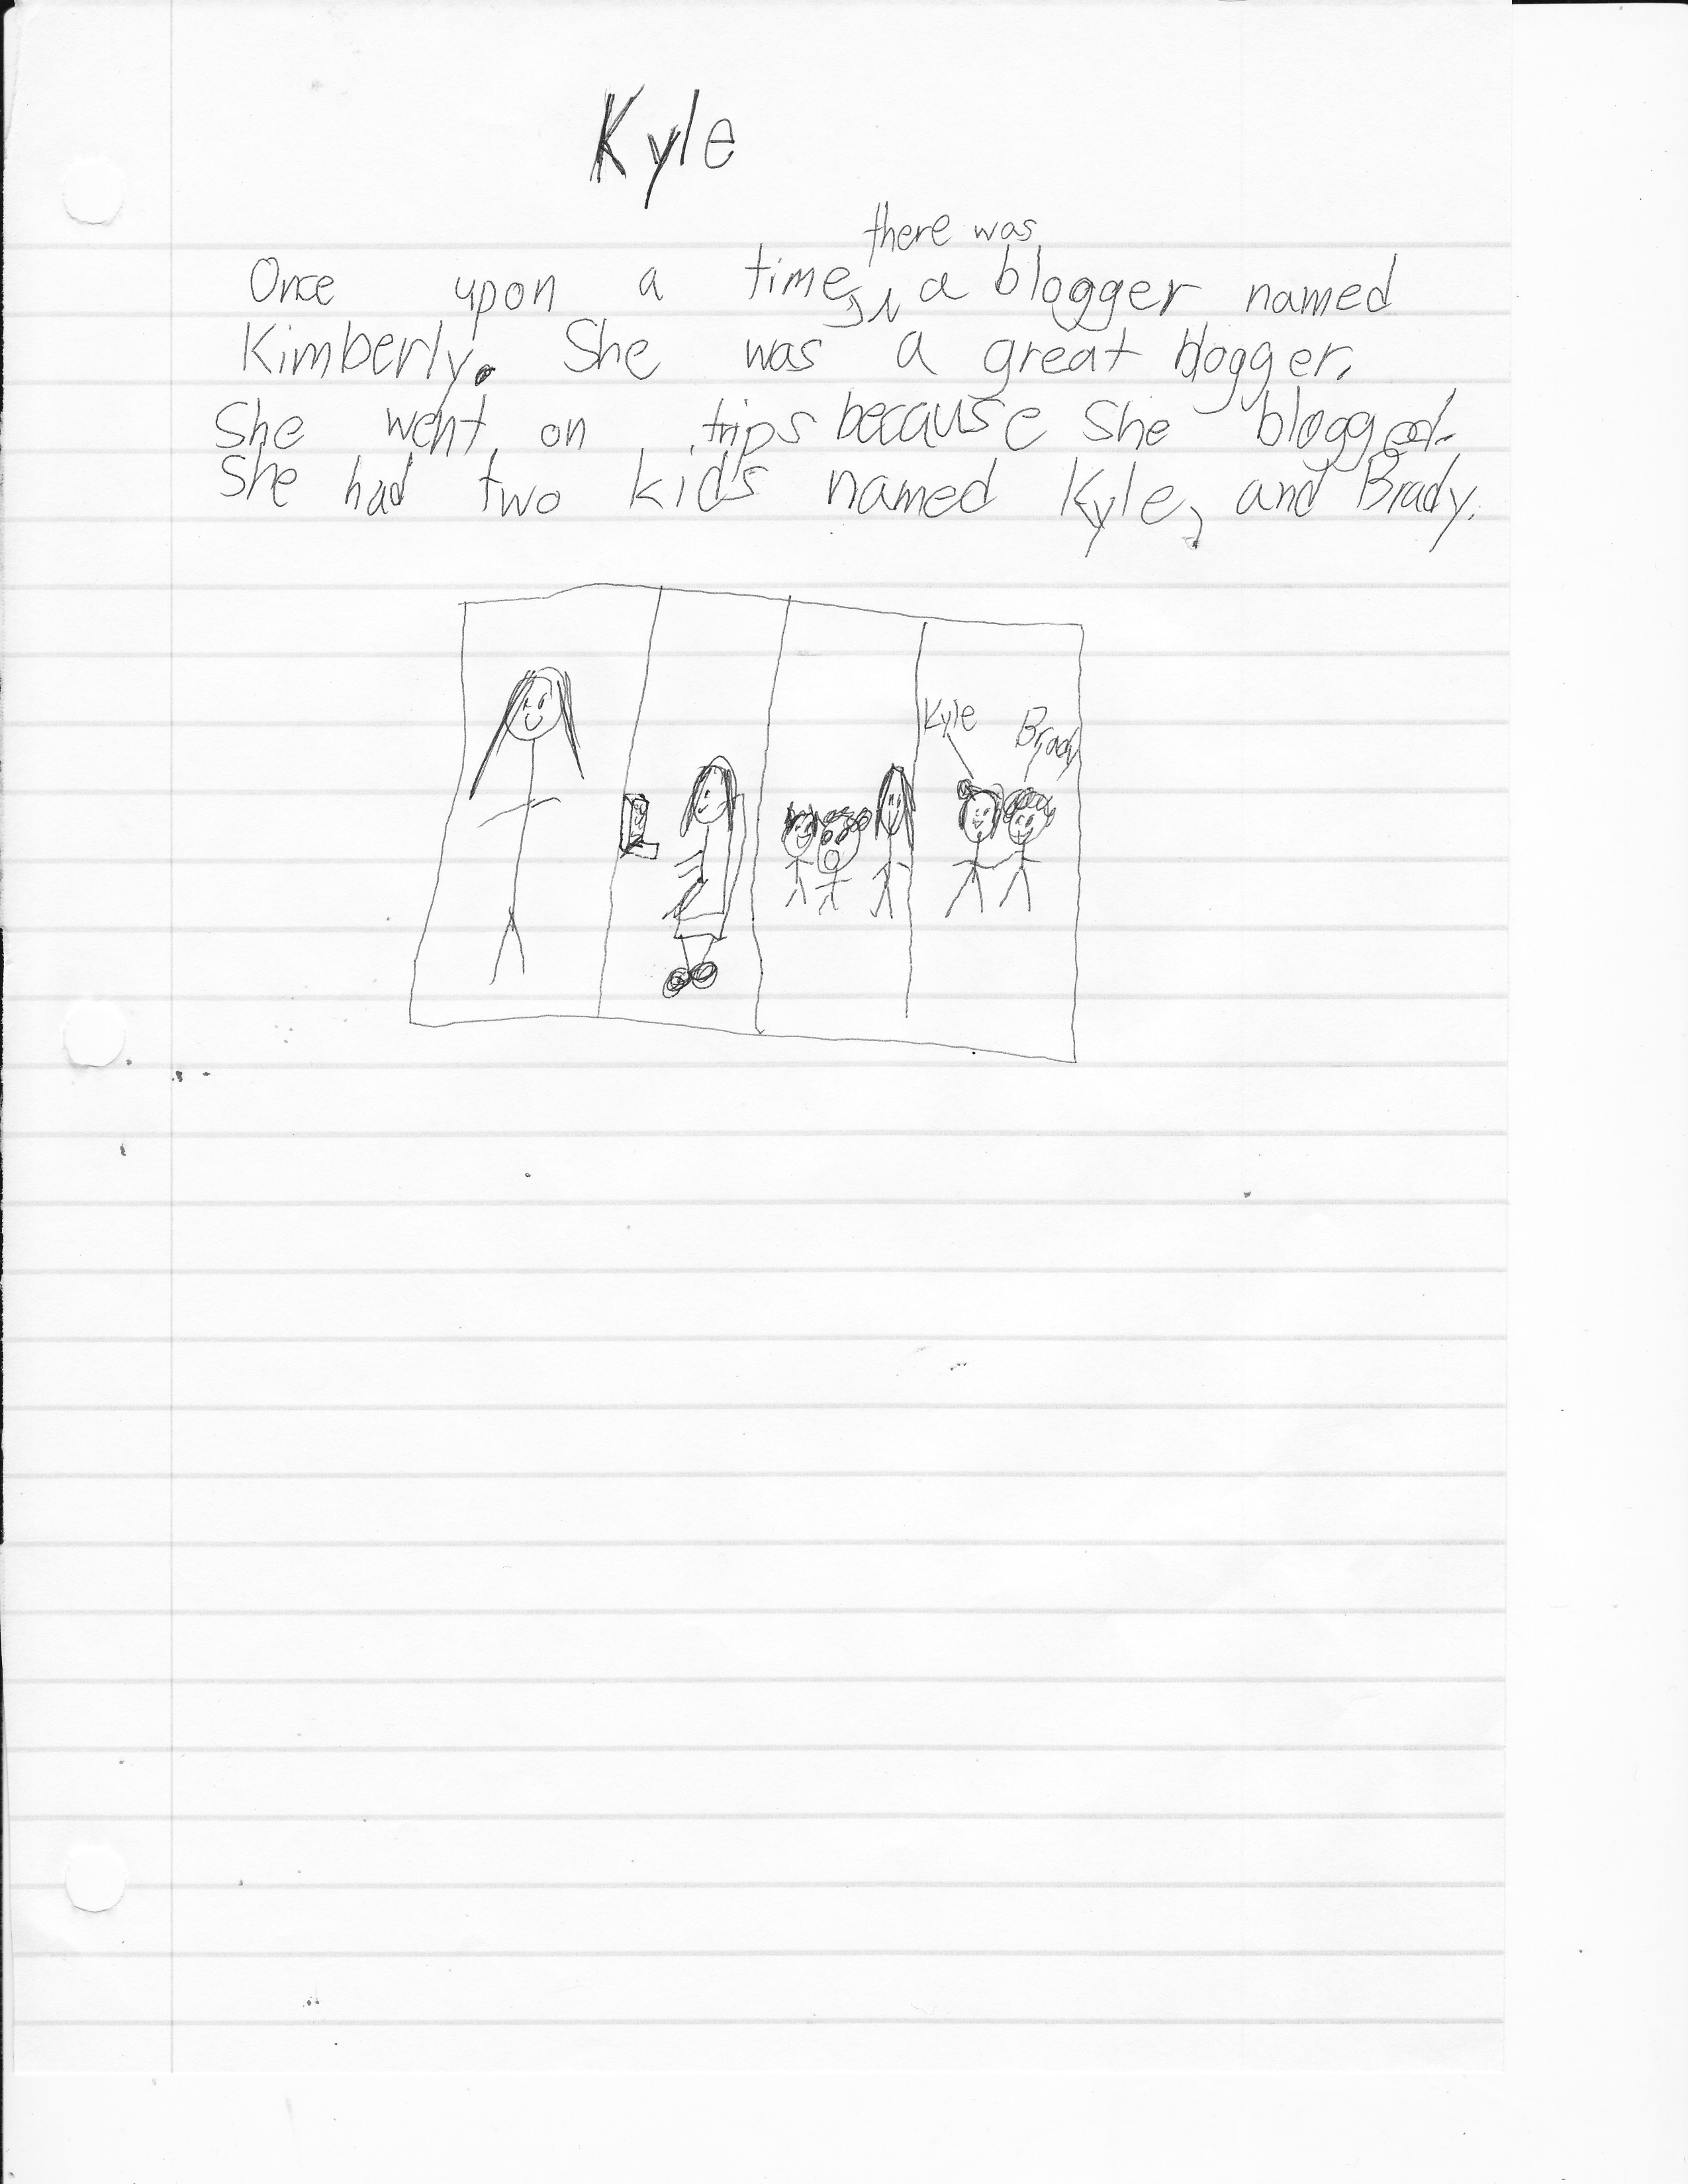 Kyle
there was
Once upon a time, a blogger named
Kimberly. She was a great blogger.
She went on trips because she blogged.
She had two kids named Kyle, and Brady.
Kyle
Brady